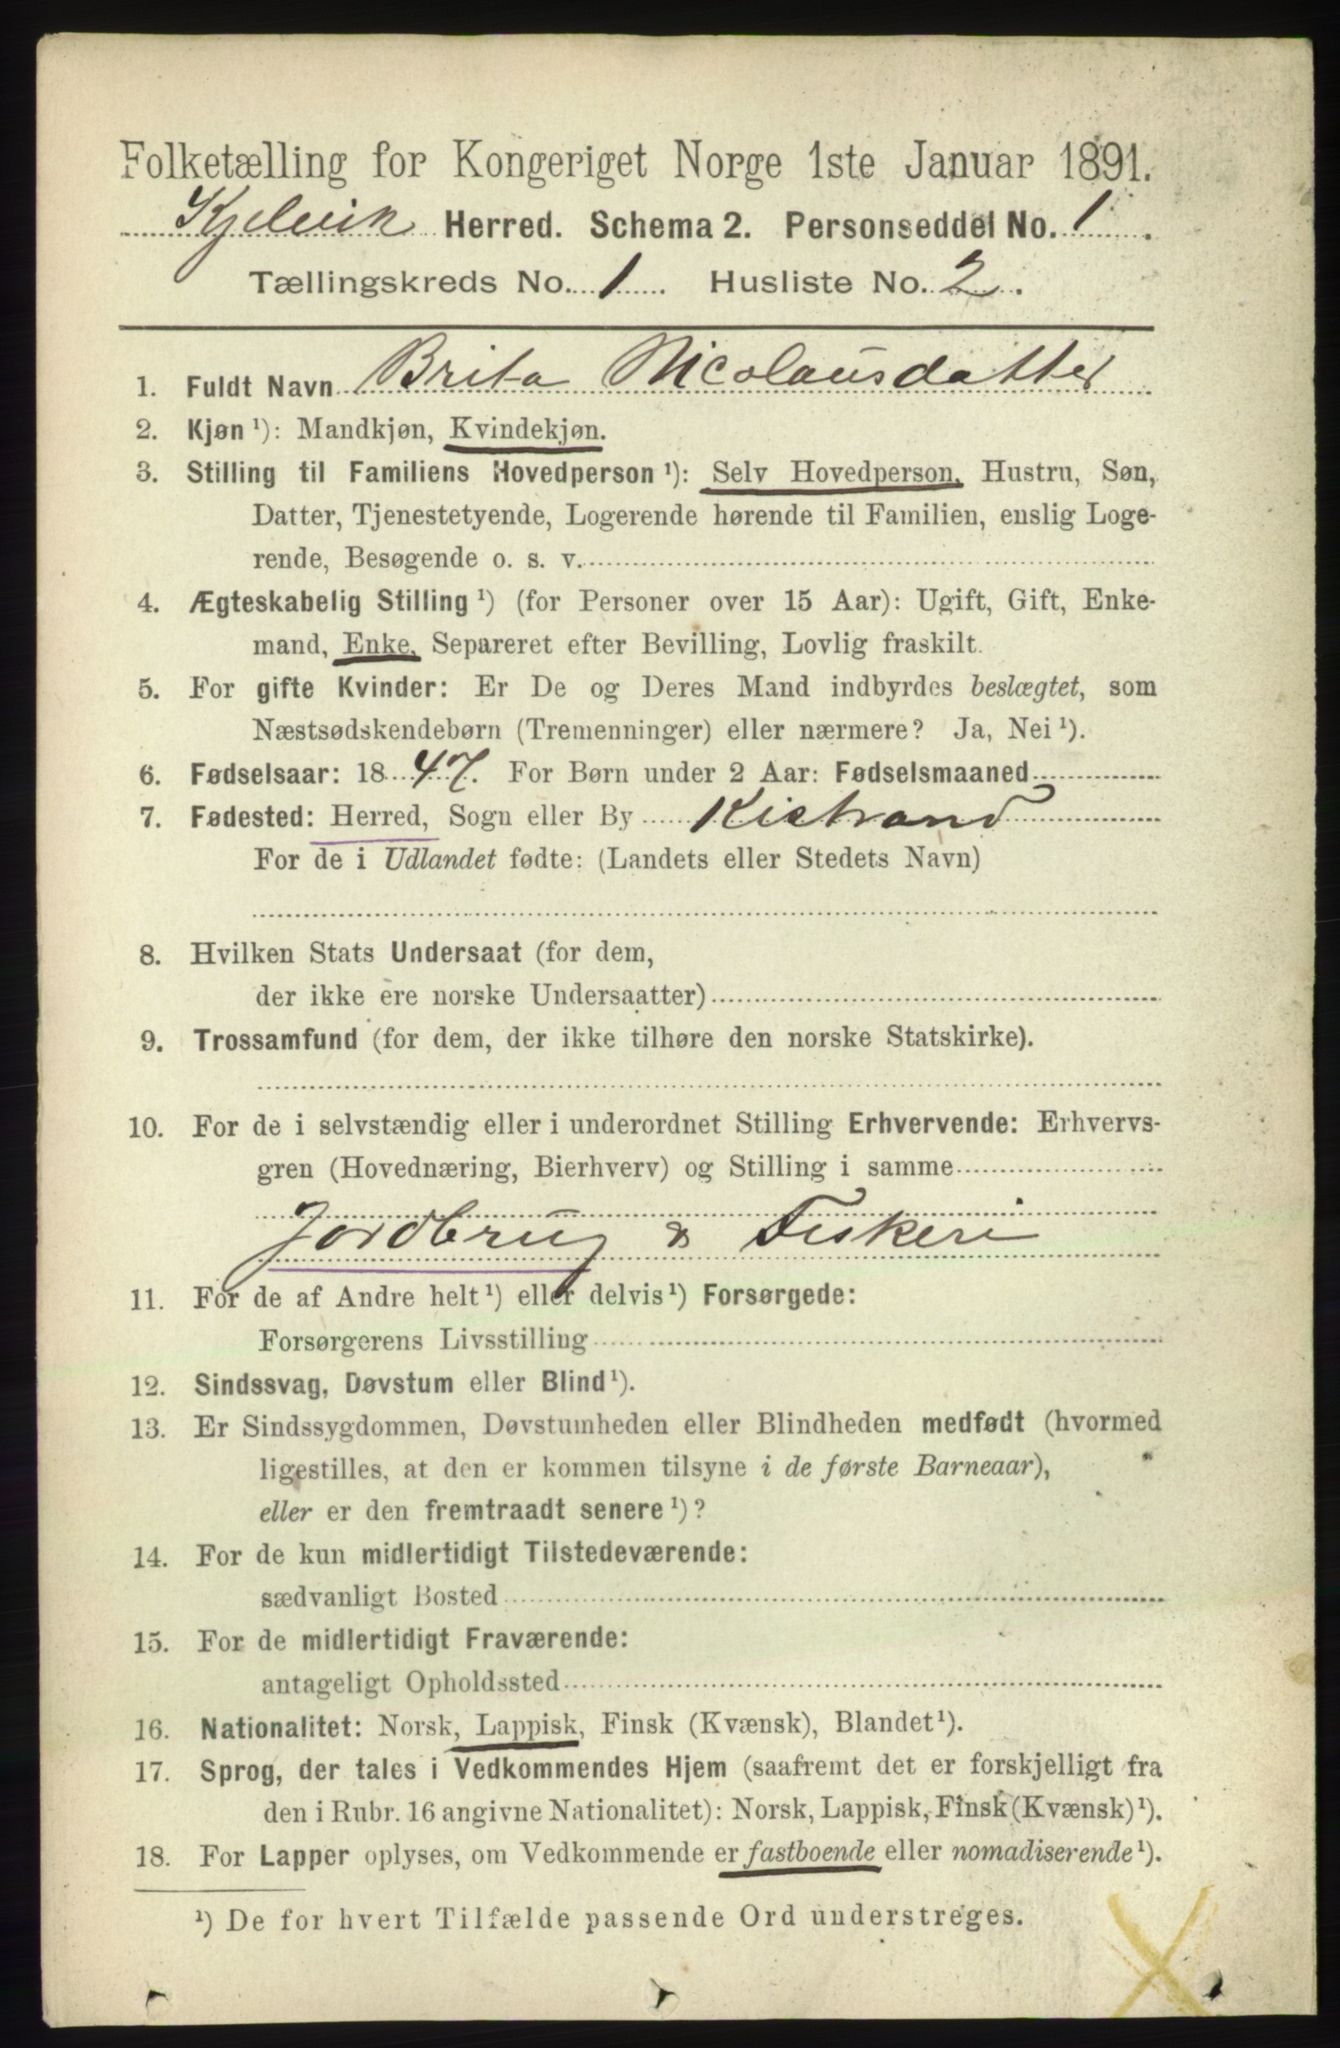 Folketælling for Kongeriget Norge 1ste Januar 1891.
Kjelvik Herred. Schema 2. Personseddel No. 1.
Tællingskreds No. 1. Husliste No. 2.
1. Fuldt Navn Brita Nicolausdatter
2. Kjøn ¹): Mandkjøn, Kvindekjøn.
3. Stilling til Familiens Hovedperson ¹): Selv Hovedperson, Hustru, Søn,
Datter, Tjenestetyende, Logerende hørende til Familien, enslig Loge-
rende, Besøgende o. s. v.
4. Ægteskabelig Stilling ¹) (for Personer over 15 Aar): Ugift, Gift, Enke-
mand, Enke, Separeret efter Bevilling, Lovlig fraskilt.
5. For gifte Kvinder: Er De og Deres Mand indbyrdes beslægtet, som
Næstsødskendebørn (Tremenninger) eller nærmere? Ja, Nei ¹).
6. Fødselsaar: 1847. For Børn under 2 Aar: Fødselsmaaned
7. Fødested: Herred, Sogn eller By Kistrand
For de i Udlandet fødte: (Landets eller Stedets Navn)
8. Hvilken Stats Undersaat (for dem,
der ikke ere norske Undersaatter)
9. Trossamfund (for dem, der ikke tilhøre den norske Statskirke).
10. For de i selvstændig eller i underordnet Stilling Erhvervende: Erhvervs-
gren (Hovednæring, Bierhverv) og Stilling i samme
Jordbrug & Fiskeri
11. For de af Andre helt ¹) eller delvis ¹) Forsørgede:
Forsørgerens Livsstilling
12. Sindssvag, Døvstum eller Blind ¹).
13. Er Sindssygdommen, Døvstumheden eller Blindheden medfødt (hvormed
ligestilles, at den er kommen tilsyne i de første Barneaar),
eller er den fremtraadt senere ¹)?
14. For de kun midlertidigt Tilstedeværende:
sædvanligt Bosted
15. For de midlertidigt Fraværende:
antageligt Opholdssted
16. Nationalitet: Norsk, Lappisk, Finsk (Kvænsk), Blandet ¹).
17. Sprog, der tales i Vedkommendes Hjem (saafremt det er forskjelligt fra
den i Rubr. 16 angivne Nationalitet): Norsk, Lappisk, Finsk (Kvænsk) ¹).
18. For Lapper oplyses, om Vedkommende er fastboende eller nomadiserende ¹).
¹) De for hvert Tilfælde passende Ord understreges.